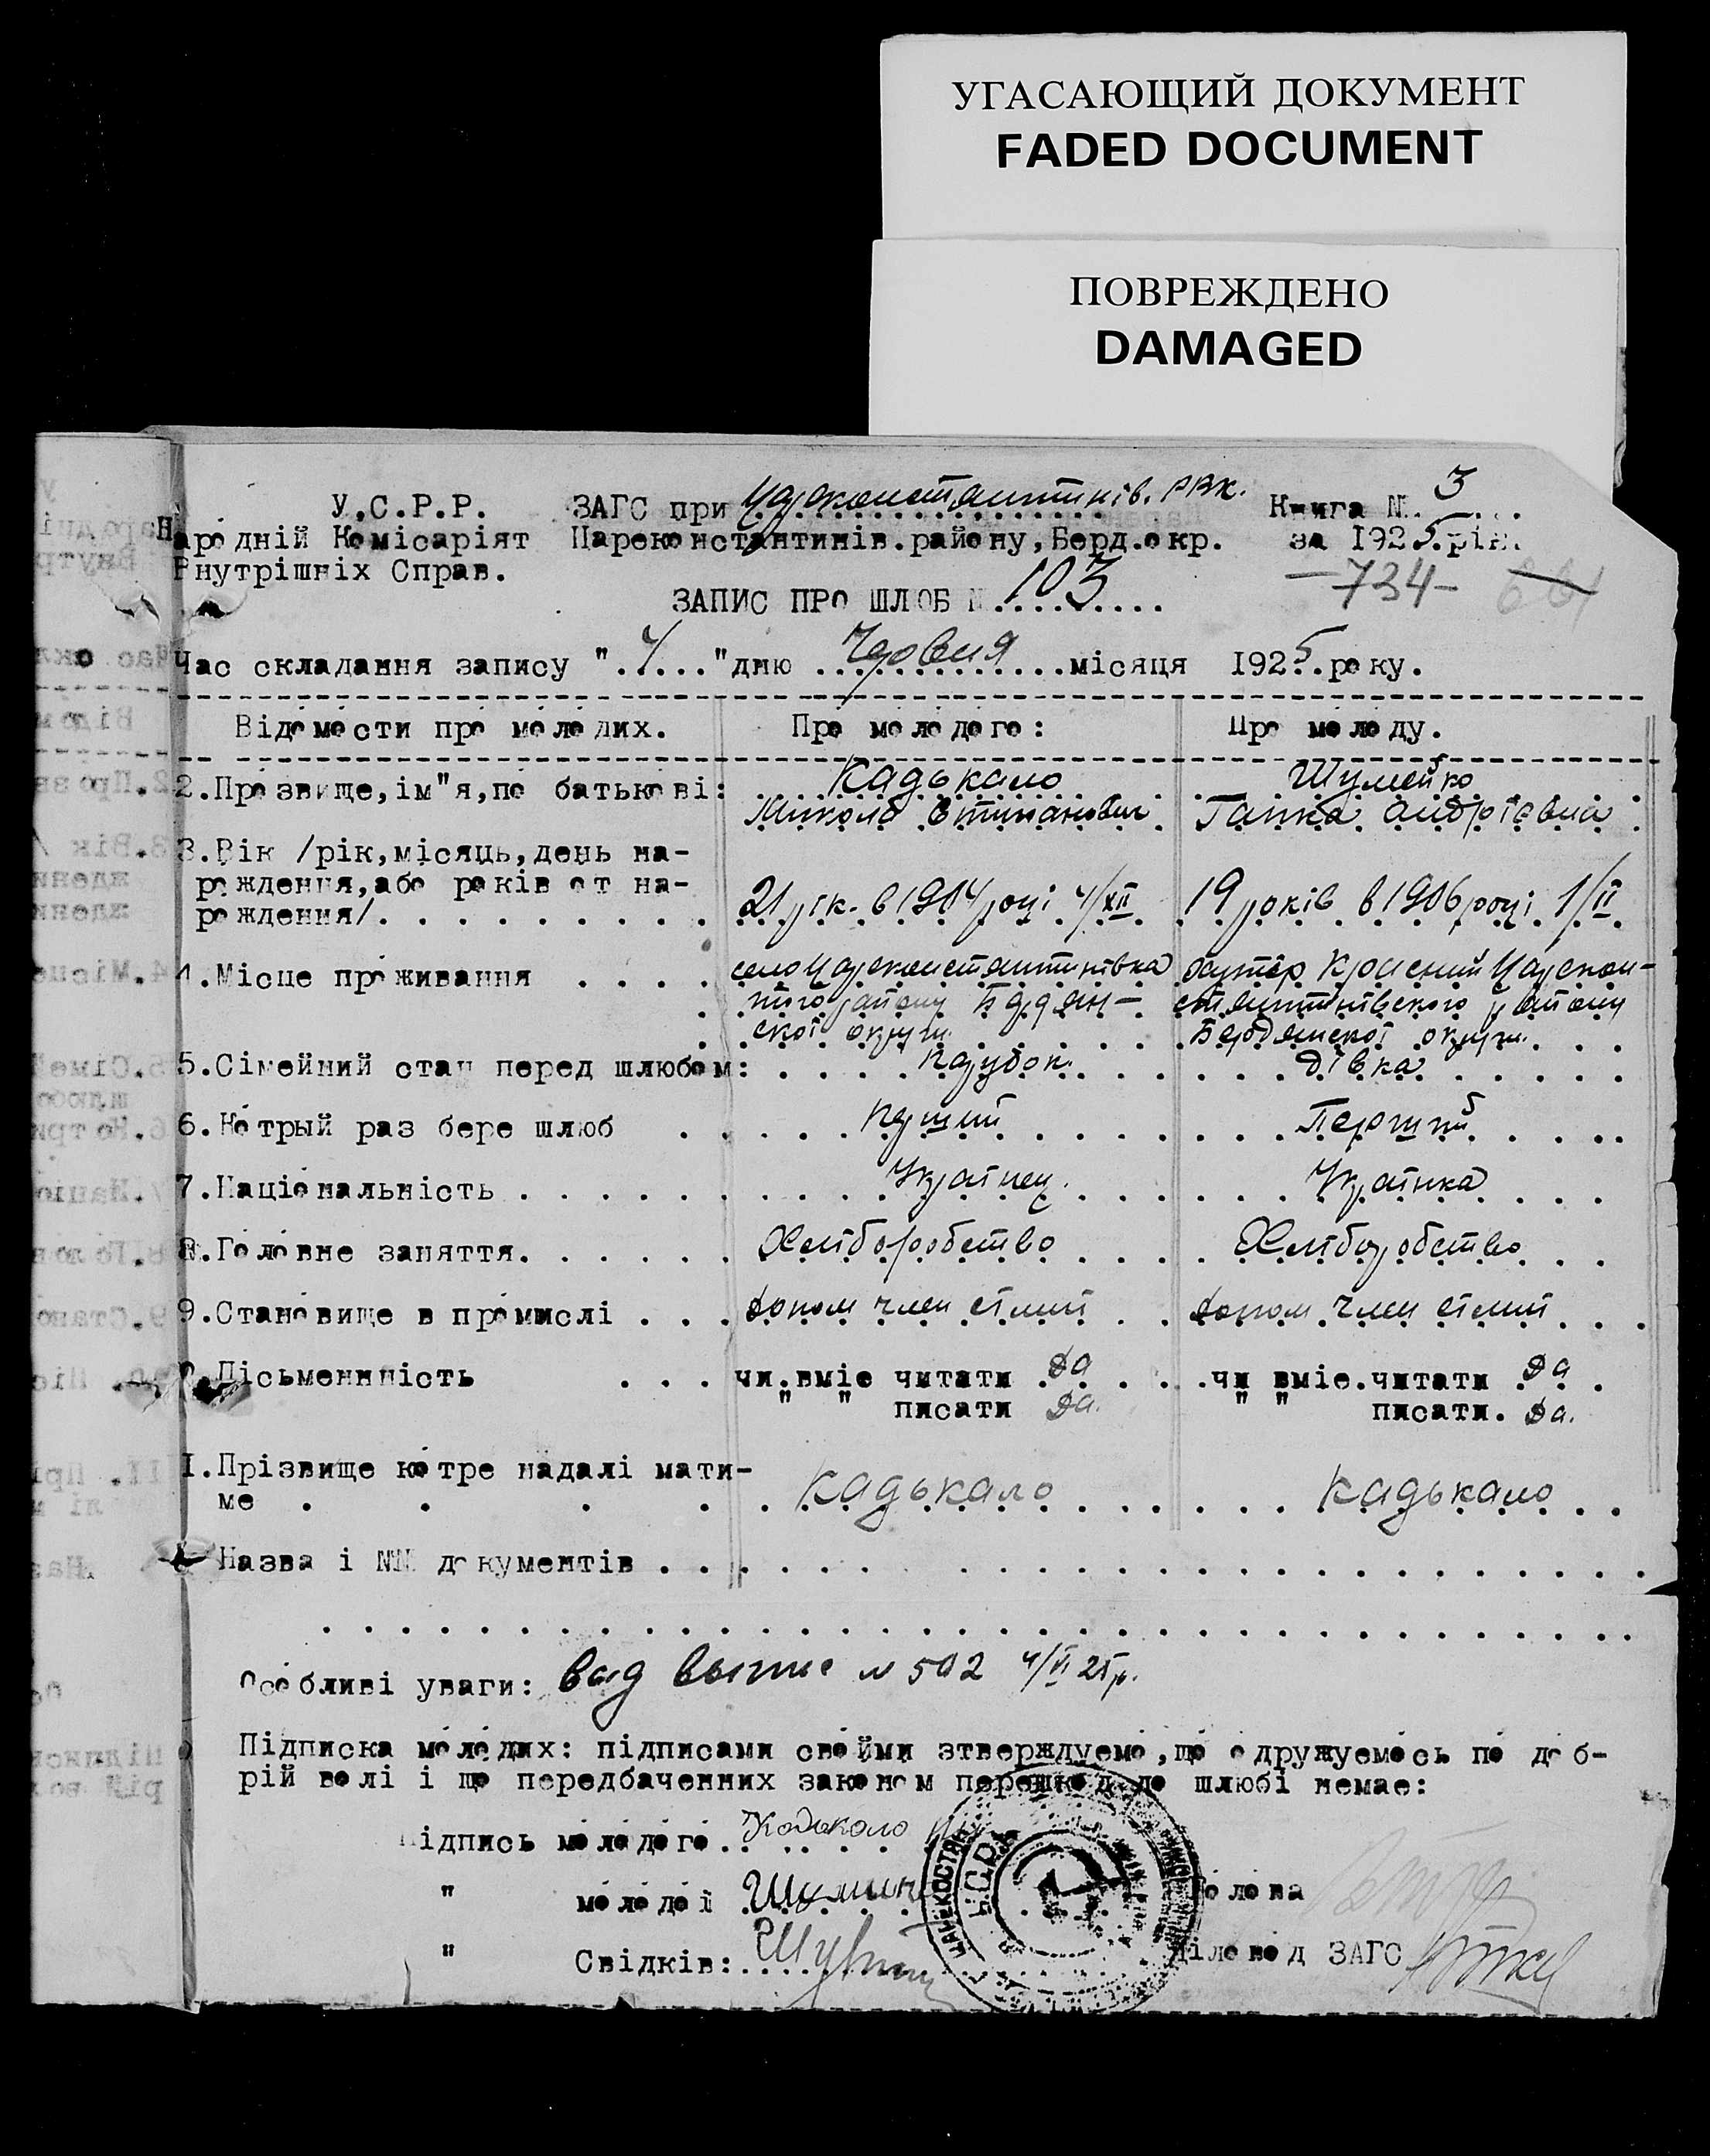 УГАСАЮЩИЙ ДОКУМЕНТ
FADED DOCUMENT
ПОВРЕЖДЕНО
DAMAGED
У.С.Р.Р. ЗАГС при Цареконстантинів. РВК. Книга №. 3
Народній Комісаріят Цареконстантинів.району,Берд.окр. за 1925.рік.
Внутрішніх Справ. -734-
ЗАПИС ПРО ШЛЮБ № 103
Час складання запису "4" дню Червня місяця 1925.року.
Відомости про молодих. Про молодого: Про молоду.
2.Прозвище,ім"я,по батькові: Кадькало Шумейко
Микола Степанович Гапка Андріевна
3.Вік /рік,місяць,день на-
рождення,або років от на-
рождення/. 21 рік. в 1904 році 4/XII 19 років в 1906 році 1/II
4.Місце проживання село Цареконстантинівка хутір Красний Царекон-
того району Бердян- стантинівского району
ської округи Бердянської округи.
5.Сімейний стан перед шлюбом: парубок. дівка
6.Котрый раз бере шлюб перший Перший
7.Національність Украінец. Украінка
8.Головне заняття. Хліборобство Хліборобство
9.Становище в промислі допом член сімii допом член сімii
Пісьменність чи.вміе читати да чи вміе.читати да
" " писати да. " " писати. да.
I.Прізвище котре надалі мати-
ме Кадькало Кадькало
Назва і №№ документів
Особливі уваги: вид. выпис № 502 4/VI 25р.
Підписка молодих: підписами своїми зтверждуемо,що одружуемось по доб-
рій волі і що передбаченних законом перешкод до шлюбі немае:
Підпись молодого. Кадькало
" молодої Голова
" Свідків: Діловод ЗАГС